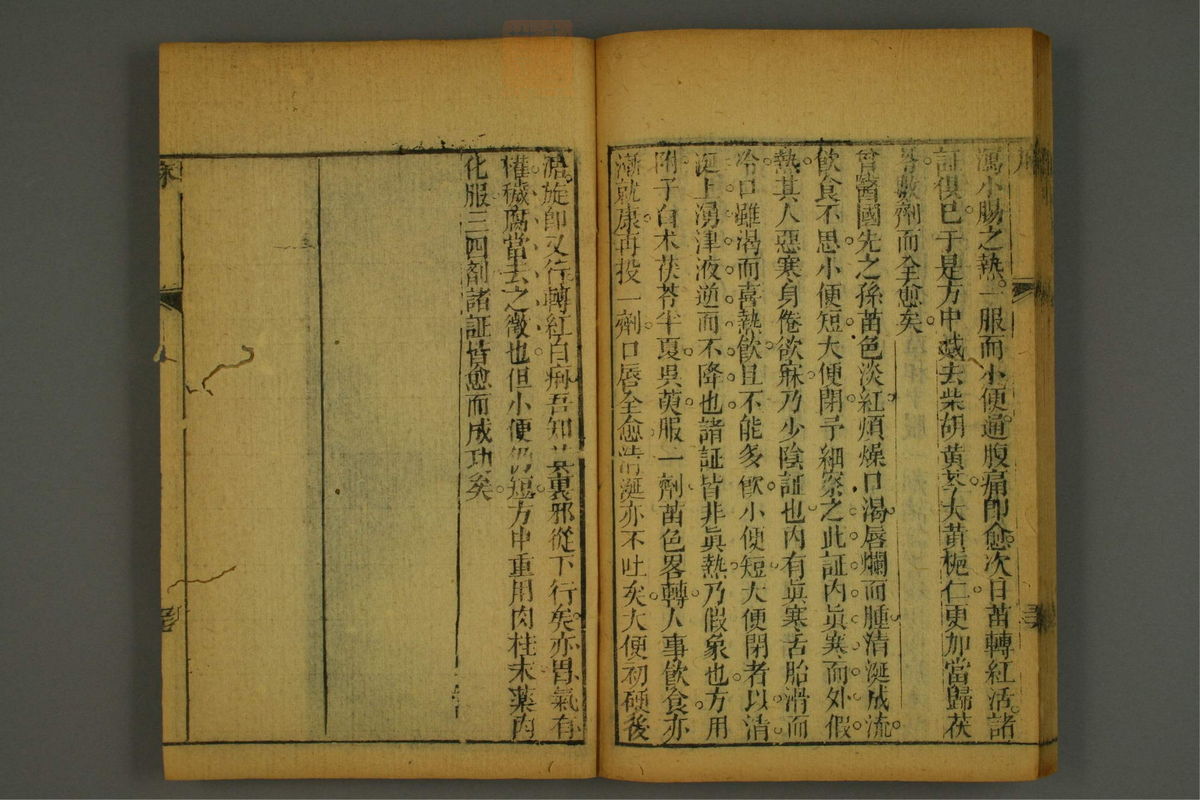 瀉小腸之熱一服而小便通腹痛即愈次日苗轉紅活諸
証俱已于是方中減去柴胡黃芩大黃梔仁更加當歸茯
苓數劑而全愈矣
曾醫國先之孫苗色淡紅煩燥口渴唇爛而腫清涎成流
飲食不思小便短大便閉予細察之此証內眞寒而外假
熱其人惡寒身倦欲寐乃少陰証也內有眞寒舌胎滑而
冷口雖渴而喜熱飲且不能多飲小便短大便閉者以清
涎上湧津液逆而不降也諸証皆非眞熱乃假象也方用
附子白术茯苓半夏吳萸服一劑苗色畧轉人事飲食亦
漸就康再投一劑口唇全愈清涎亦不吐矣大便初硬後
溏旋即又行轉紅白痢吾知其裏邪從下行矣亦胃氣有
權穢腐當去之徵也但小便仍短方中重用肉桂末藥內
化服三四劑諸証皆愈而成功矣